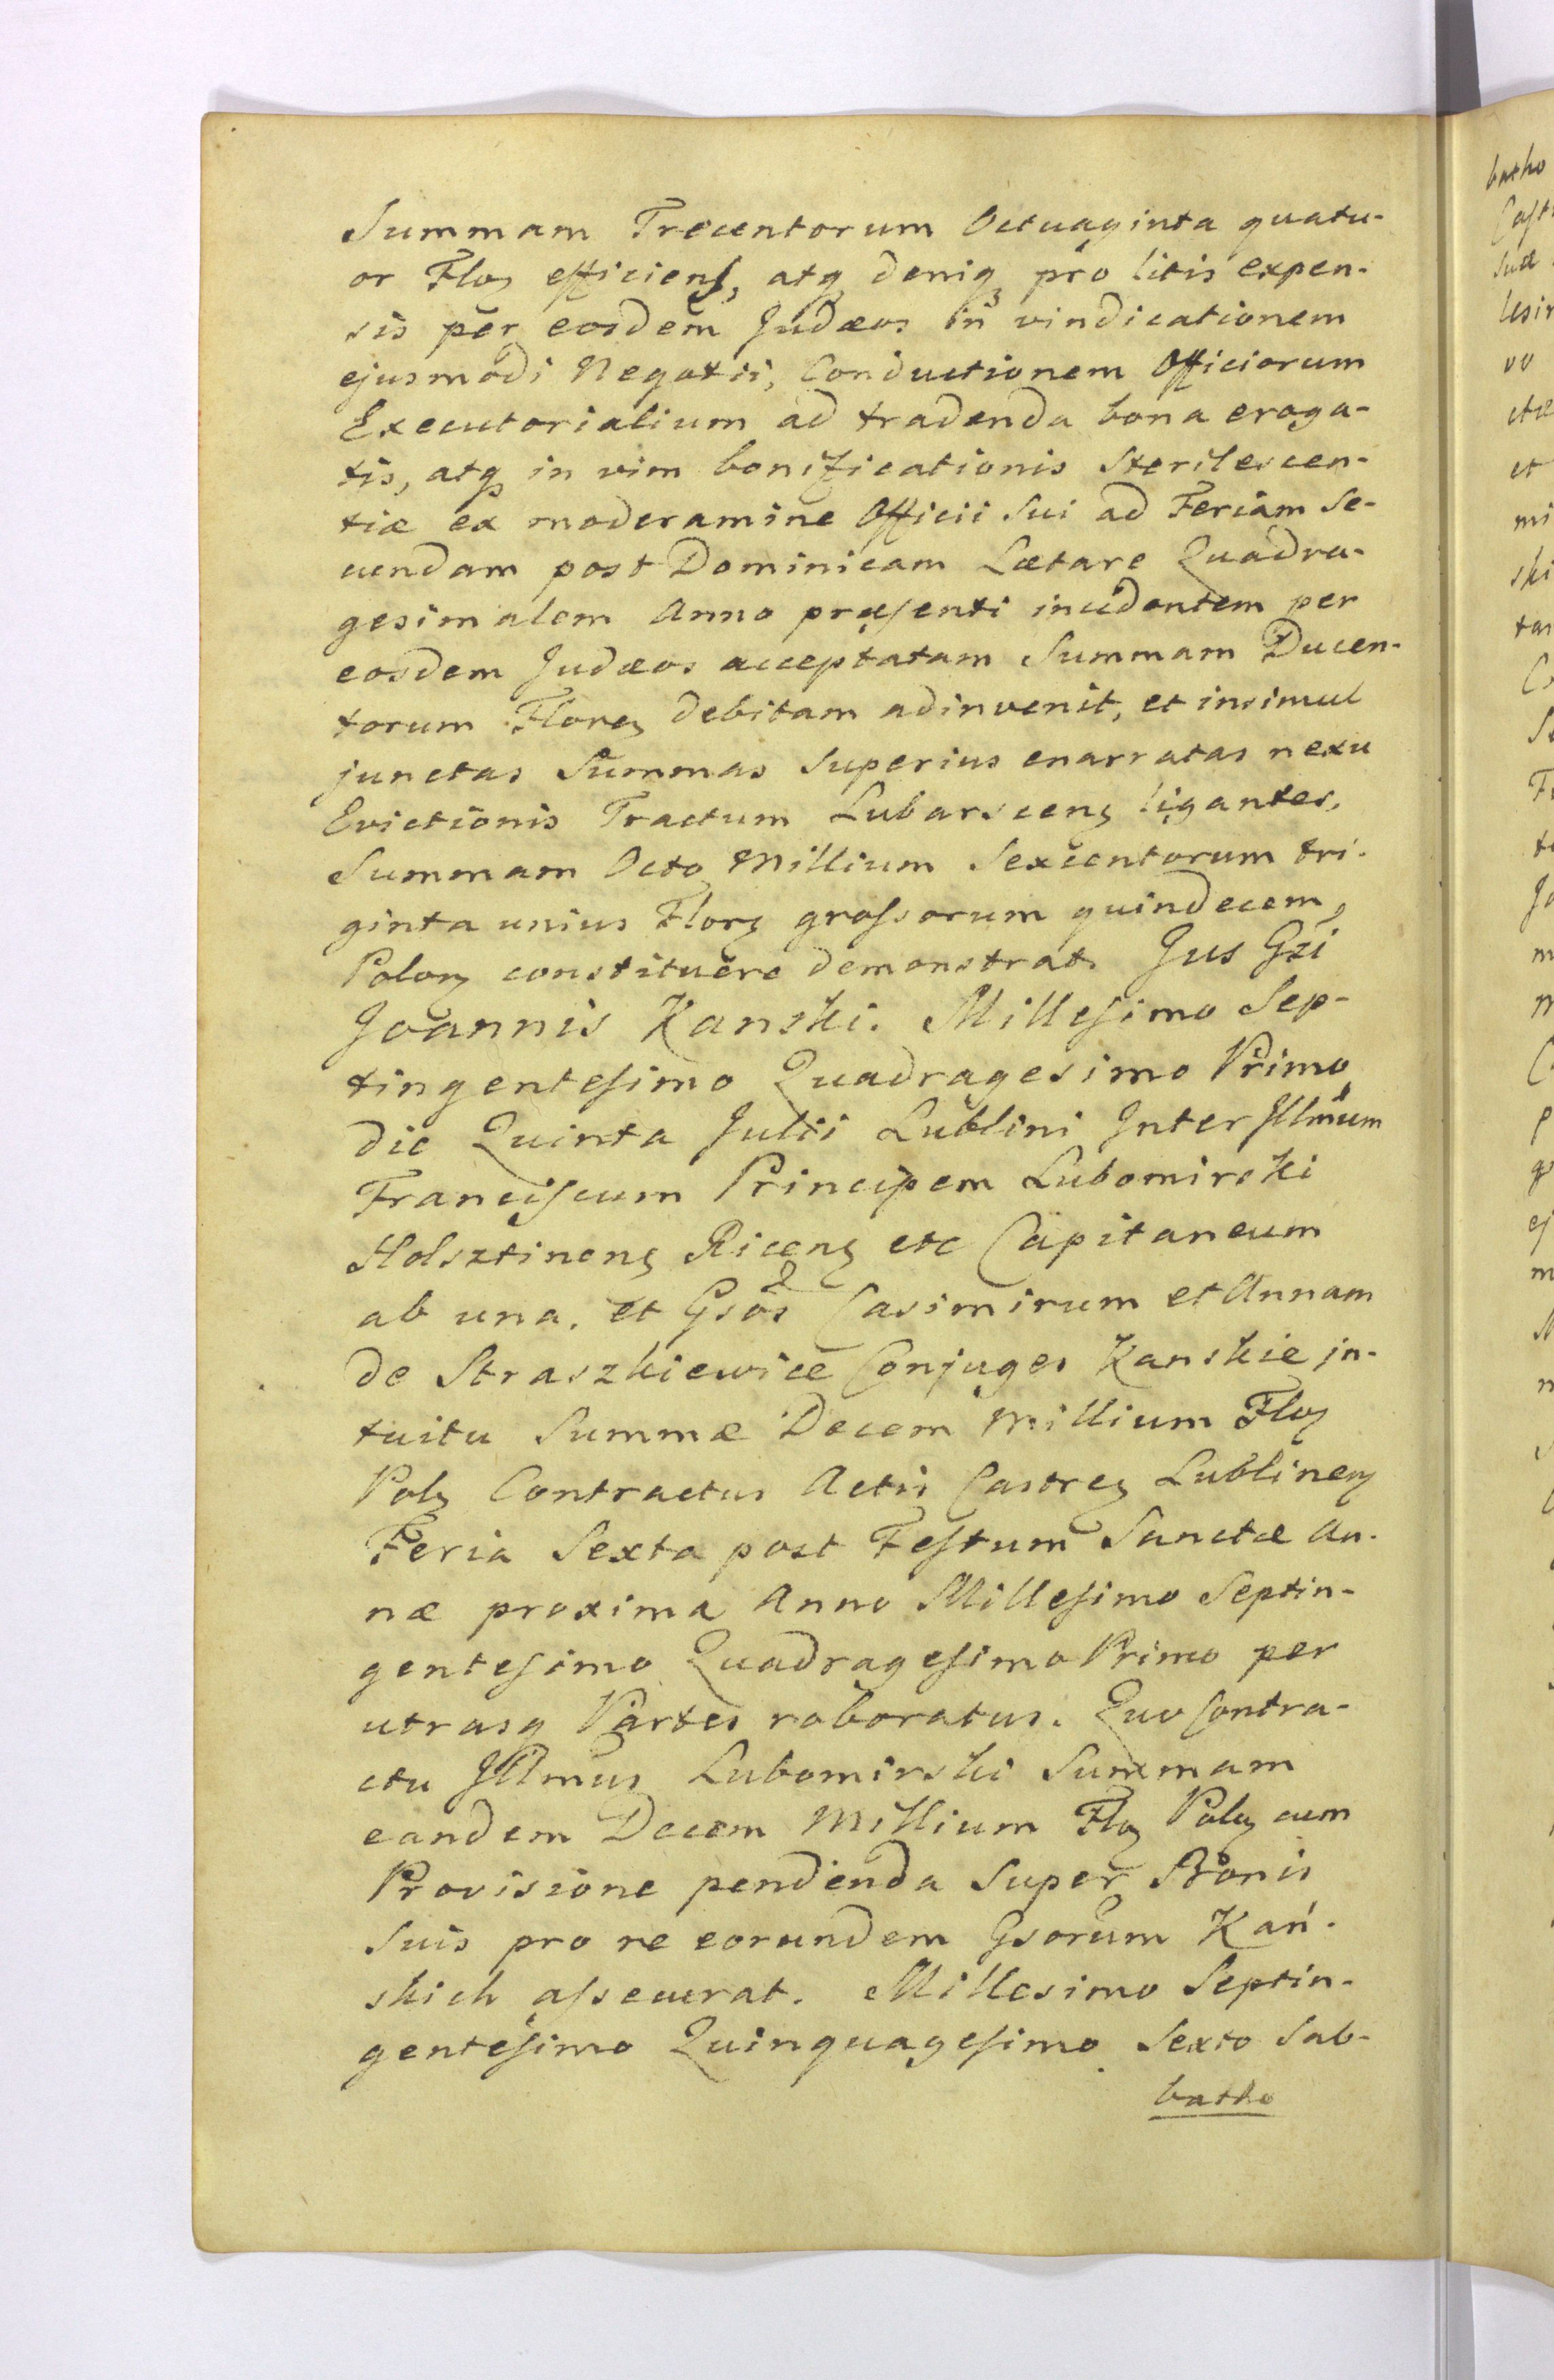 Summam Trecentorum Octuaginta quatu-
or Floꝝ efficiens, atqꝫ deniqꝫ pro litis expen-
sis per eosdem Judæos in vindicationem
ejusmodi Negotii, Conductionem Officiorum
Executorialium ad tradenda bona eroga-
tis, atqꝫ in vim bonificationis sterilescen-
tiæ ex moderamine Officii sui ad Feriam Se-
cundam post Dominicam Lætare Quadra-
gesimalem Anno præsenti incidentem per
eosdem Judæos acceptatam Summam Ducen-
torum Floreꝝ debitam adinvenit, et insimul
junctas Summas superius enarratas nexu
Evictionis Tractum Lubarscenꝫ ligantes,
Summam Octo Millium Sexcentorum tri-
ginta unius Florꝫ grossorum quindecem
Polonꝫ constituere demonstrat. Jus Gsi
Joannis Kanski. Millesimo Sep-
tingentesimo Quadragesimo Primo
die Quinta Julii Lublini Inter Illmum
Franciscum Principem Lubomirski
Holsztinenꝫ Ricenꝫ etc Capitaneum
ab una, et Gsos Casimirum et Annam
de Straszkiewice Conjuges Kanskie in-
tuitu Summæ Decem Millium Floꝝ
Polꝫ Contractus Actis Castreꝫ Lublinenꝫ
Feria Sexta post Festum Sanctæ An-
næ proxima Anno Millesimo Septin-
gentesimo Quadragesimo Primo per
utrasqꝫ Partes roboratus. Quo Contra-
ctu Illmus Lubomirski Summam
eandem Decem Millium Floꝝ Polꝫ cum
Provisione pendenda super Bonis
suis pro re eorundem Gsorum Kań-
skich assecurat. Millesimo Septin-
gentesimo Quinquagesimo Sexto Sab-
batho